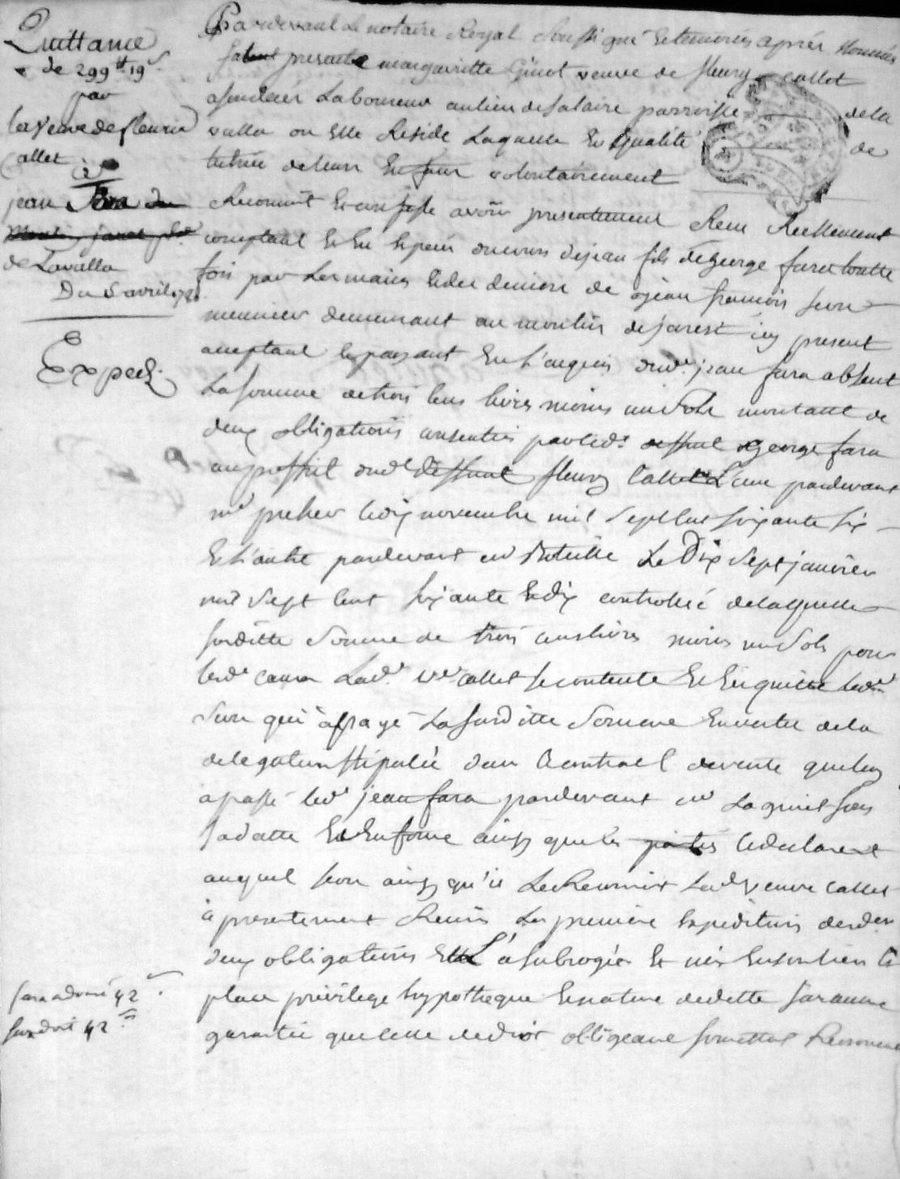 Quittance
de 299 ₶ 19 s
par
la veuve de fleurie
Callet
à
jean
de Lavalla
Du 5 avril
Exped.
Pardevant Le notaire Royal Soussigné et temoins après nommés
fut presente margueritte Ginot veuve de fleury callet
Laboureur au lieu de salaire parroisse de la
valla ou Elle Reside Laquelle En qualité de
tutrice de leurs Enfans volontairement
Reconnoit et confesse avoir presentement Receu Reellement
comptant et En Especes du cours de jean fils de George fara toutte
fois par Les mains et des deniers de jean francois
meunier demeurant au moulin de jarest icy present
acceptant et payant En l'acquis dud. jean fara absent
La somme de trois cens livres moins un Sols montant de
deux obligations consenties par led. George fara
au proffit dud. deffunt fleury Callet L'une pardevant
me le dix novembre mil Sept cens soixante six
Et l'autre pardevant Le Dix Sept janvier
mil Sept cent soixante et dix controllé de laquelle
susditte Somme de trois cens livres moins un Sols pour
lad. cause Lad. ve callet se contente Et En quitte led.
qui a payé La susditte Somme En vertu de la
delegation stipulée dans le contract de vente que luy
a passé led. jean fara pardevant
sa datte Et En forme ainsy que les parties le declarent
auquel ainsy qu'il Le Reconnoit Lad. veuve callet
a presentement Remis Les premières Expeditions desd.
deux obligations Et L'a subrogé Et mis En son lieu
place privilege hypotheque Et nature de dette sans aucune
garantie que celle de droit obligeant soumettant Renonceant
fara a donné 42 s
doit 42 s